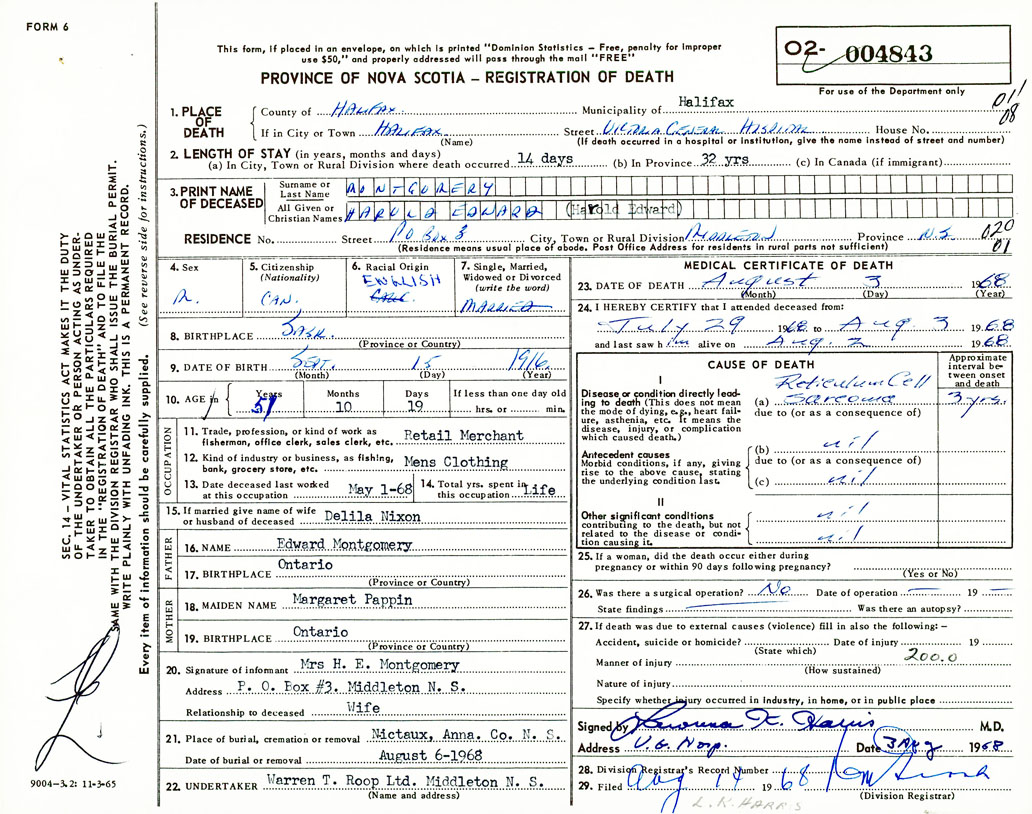 FORM 6
This form, if placed in an envelope, on which is printed "Dominion Statistics – Free, penalty for improper
use $50," and properly addressed will pass through the mail "FREE"
PROVINCE OF NOVA SCOTIA – REGISTRATION OF DEATH
02- 004843
For use of the Department only
011
08
1. PLACE OF DEATH
County of HALIFAX Municipality of Halifax
If in City or Town HALIFAX Street VICTORIA GENERAL HOSPITAL House No.
(Name) (If death occurred in a hospital or institution, give the name instead of street and number)
2. LENGTH OF STAY (in years, months and days)
(a) In City, Town or Rural Division where death occurred 14 days (b) In Province 32 yrs (c) In Canada (if immigrant)
3. PRINT NAME OF DECEASED
Surname or Last Name MONTGOMERY
All Given or Christian Names HAROLD EDWARD (Harold Edward)
RESIDENCE No. Street PO Box 3 City, Town or Rural Division MIDDLETON Province N.S.
020
01
(Residence means usual place of abode. Post Office Address for residents in rural parts not sufficient)
4. Sex M.
5. Citizenship (Nationality) CAN.
6. Racial Origin ENGLISH
7. Single, Married, Widowed or Divorced (write the word) MARRIED
8. BIRTHPLACE SASK.
(Province or Country)
9. DATE OF BIRTH SEPT. 15 1916
(Month) (Day) (Year)
10. AGE in Years 51 Months 10 Days 19 If less than one day old hrs. or min.
OCCUPATION
11. Trade, profession, or kind of work as fisherman, office clerk, sales clerk, etc. Retail Merchant
12. Kind of industry or business, as fishing, bank, grocery store, etc. Mens Clothing
13. Date deceased last worked at this occupation May 1-68
14. Total yrs. spent in this occupation Life
15. If married give name of wife or husband of deceased Delila Nixon
FATHER
16. NAME Edward Montgomery
17. BIRTHPLACE Ontario
(Province or Country)
MOTHER
18. MAIDEN NAME Margaret Pappin
19. BIRTHPLACE Ontario
(Province or Country)
20. Signature of informant Mrs H. E. Montgomery
Address P. O. Box #3. Middleton N. S.
Relationship to deceased Wife
21. Place of burial, cremation or removal Nictaux, Anna. Co. N. S.
Date of burial or removal August 6-1968
22. UNDERTAKER Warren T. Roop Ltd. Middleton N. S.
(Name and address)
MEDICAL CERTIFICATE OF DEATH
23. DATE OF DEATH August 3 1968
(Month) (Day) (Year)
24. I HEREBY CERTIFY that I attended deceased from:
July 29 1968 to Aug. 3 1968
and last saw him alive on Aug. 2 1968
CAUSE OF DEATH
Approximate interval between onset and death
I
Disease or condition directly leading to death (This does not mean the mode of dying, e.g., heart failure, asthenia, etc. It means the disease, injury, or complication which caused death.)
(a) Reticulum Cell Sarcoma 3 yrs.
due to (or as a consequence of)
Antecedent causes
Morbid conditions, if any, giving rise to the above cause, stating the underlying condition last.
(b) nil
due to (or as a consequence of)
(c) nil
II
Other significant conditions contributing to the death, but not related to the disease or condition causing it.
nil
nil
25. If a woman, did the death occur either during
pregnancy or within 90 days following pregnancy?
(Yes or No)
26. Was there a surgical operation? No Date of operation 19
State findings Was there an autopsy?
27. If death was due to external causes (violence) fill in also the following: –
Accident, suicide or homicide? Date of injury 19
(State which) 200.0
Manner of injury
(How sustained)
Nature of injury
Specify whether injury occurred in industry, in home, or in public place
Signed by K. Harris M.D.
Address V.G. Hosp. Date 3 Aug 1968
28. Division Registrar's Record Number
29. Filed Aug 14 1968
(Division Registrar)
L. K. HARRIS
SEC. 14 – VITAL STATISTICS ACT MAKES IT THE DUTY
OF THE UNDERTAKER OR PERSON ACTING AS UNDER-
TAKER TO OBTAIN ALL THE PARTICULARS REQUIRED
IN THE "REGISTRATION OF DEATH" AND TO FILE THE
SAME WITH THE DIVISION REGISTRAR WHO SHALL ISSUE THE BURIAL PERMIT.
WRITE PLAINLY WITH UNFADING INK. THIS IS A PERMANENT RECORD.
Every item of information should be carefully supplied. (See reverse side for instructions.)
9004–3.2: 11-3-65